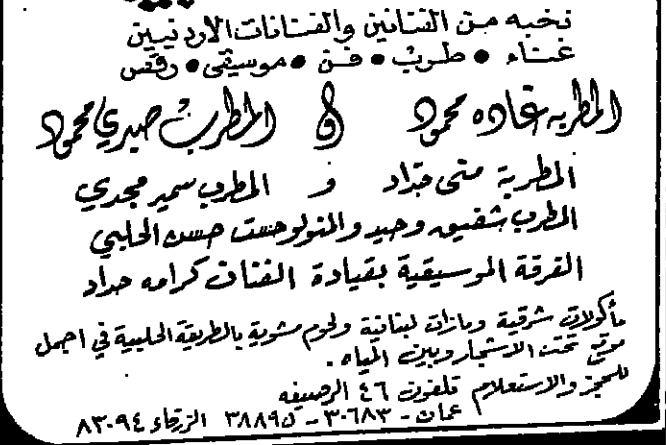 نخبه من الفنانين والفنانات الاردنيين
غناء • طرب • فن • موسيقى • رقص
المطربه غاده محمود و المطرب صبري محمود
المطربة منى حداد و المطرب سمير مجدي
المطرب شفيق وحيد والمنولوجست حسن الحلبي
الفرقة الموسيقية بقيادة الفنان كرامه حداد
مأكولات شرقية ومازات لبنانية ولحوم مشوية بالطريقة الحلبية في اجمل
تحت الاشجار وبين المياه .
للحجز والاستعلام تلفون ٤٦ الرصيفه
عمان - ٣٠٦٨٣ - ٣٨٨٩٥ الزرقاء ٨٣٠٩٤